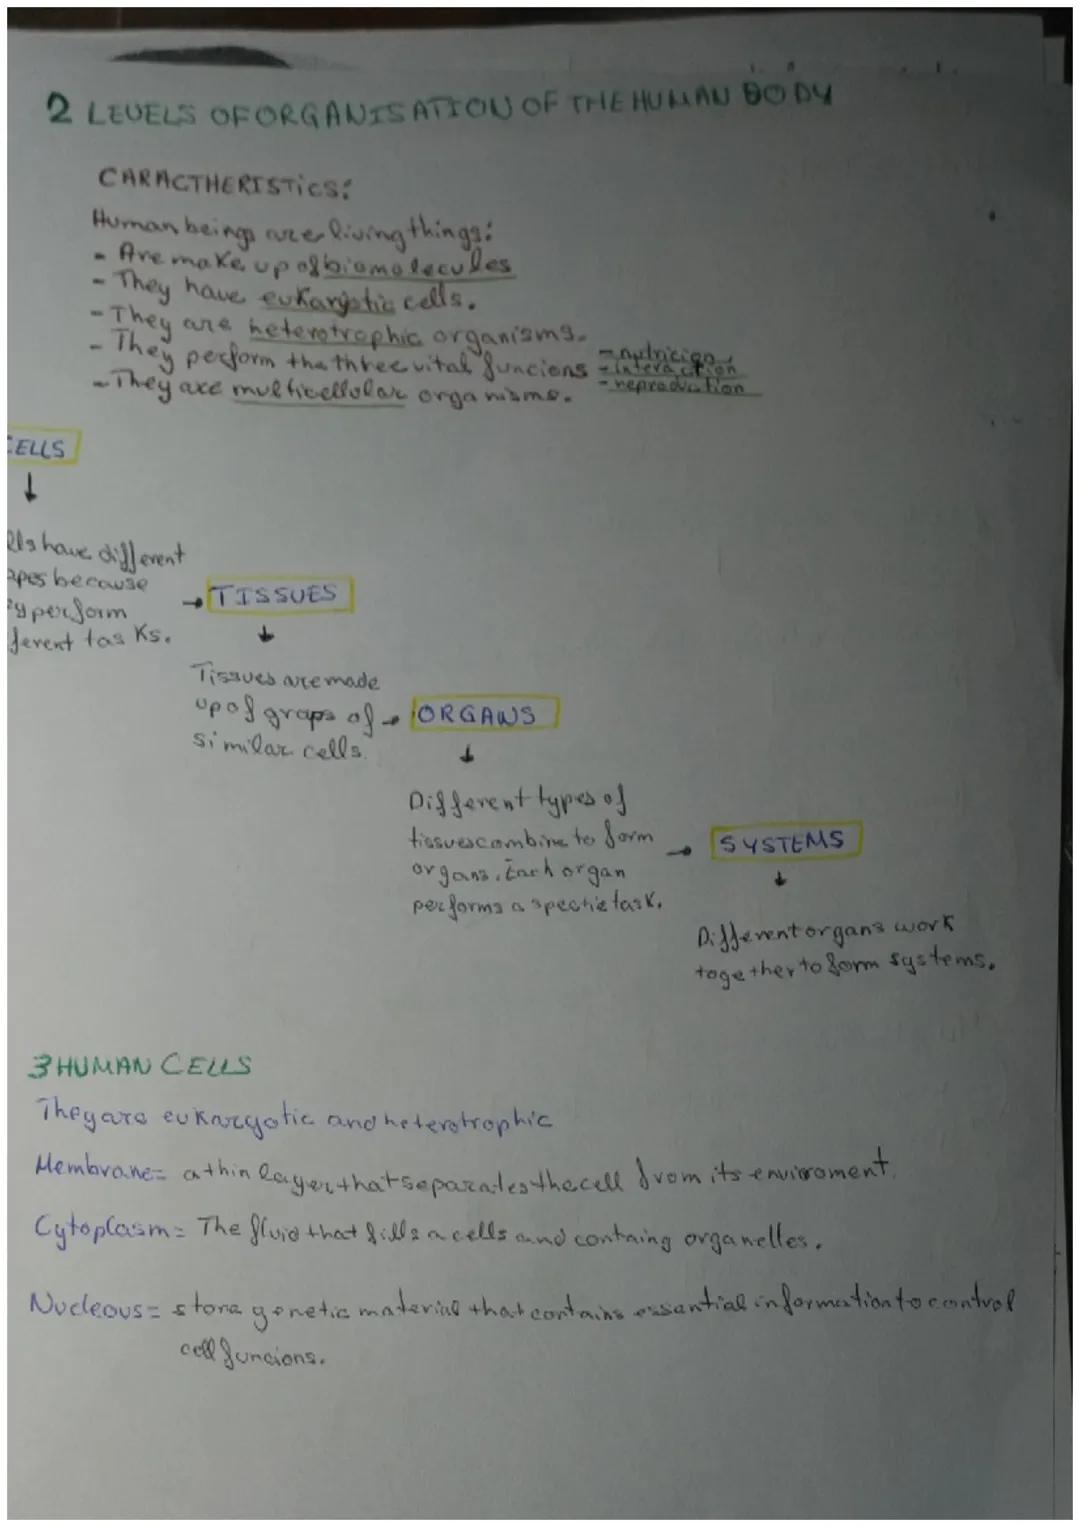 2 LEVELS OF ORGANISATION OF THE HUMAN BODY
CARACTHERISTICS:
Human beings are living things:
- Are make up of biomolecules
- They have eukaryotic cells.
- They are heterotrophic organisms.
- They perform the three vital funcions - nutricion
- interaction
- reproduction
- They are multicellular organisms.
CELLS
↓
lls have different
apes because
ey perform
ferent tasks.
→ TISSUES
↓
Tissues are made
up of graps of → ORGANS
similar cells.
↓
Different types of
tissues combine to form → SYSTEMS
organs. Each organ
performs a task.
↓
Different organs work
together to form systems.
3 HUMAN CELLS
They are eukaryotic and heterotrophic
Membrane= a thin layer that separates the cell from its enviroment.
Cytoplasm= The fluid that fills a cells and containg organelles.
Nucleous= store genetic material that contains essential information to control
cell funcions.